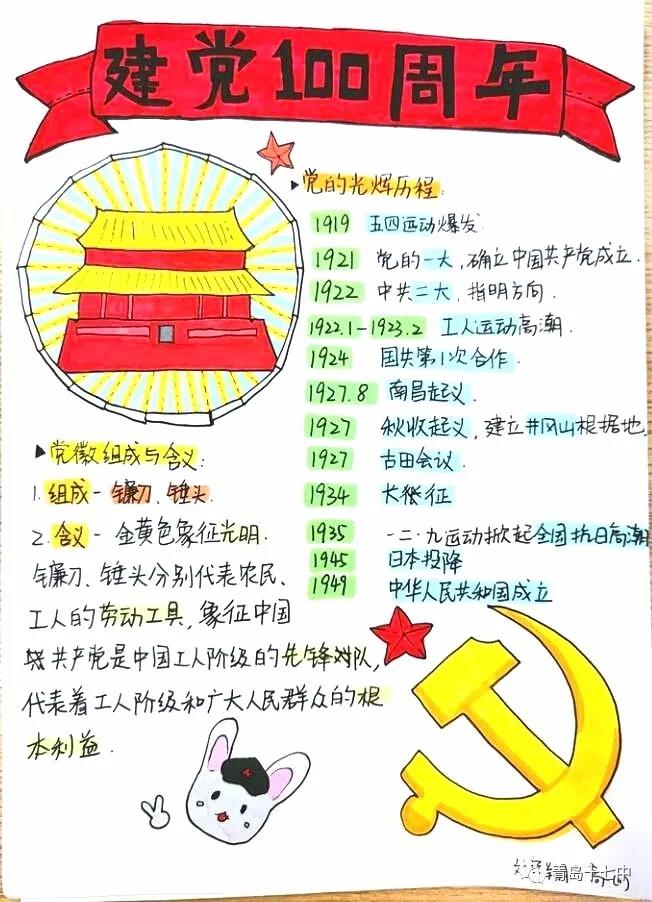 建党100周年
▶党的光辉历程:
1919 五四运动爆发.
1921 党的一大,确立中国共产党成立.
1922 中共二大,指明方向.
1922.1-1923.2 工人运动高潮.
1924 国共第1次合作.
1927.8 南昌起义.
1927 秋收起义,建立井冈山根据地.
1927 古田会议.
1934 长征
1935 一二·九运动掀起全国抗日高潮
1945 日本投降
1949 中华人民共和国成立
▶党徽组成与含义:
1.组成-镰刀、锤头.
2.含义-金黄色象征光明.
镰刀、锤头分别代表农民、
工人的劳动工具,象征中国
共产党是中国工人阶级的先锋队,
代表着工人阶级和广大人民群众的根
本利益.
青岛十七中